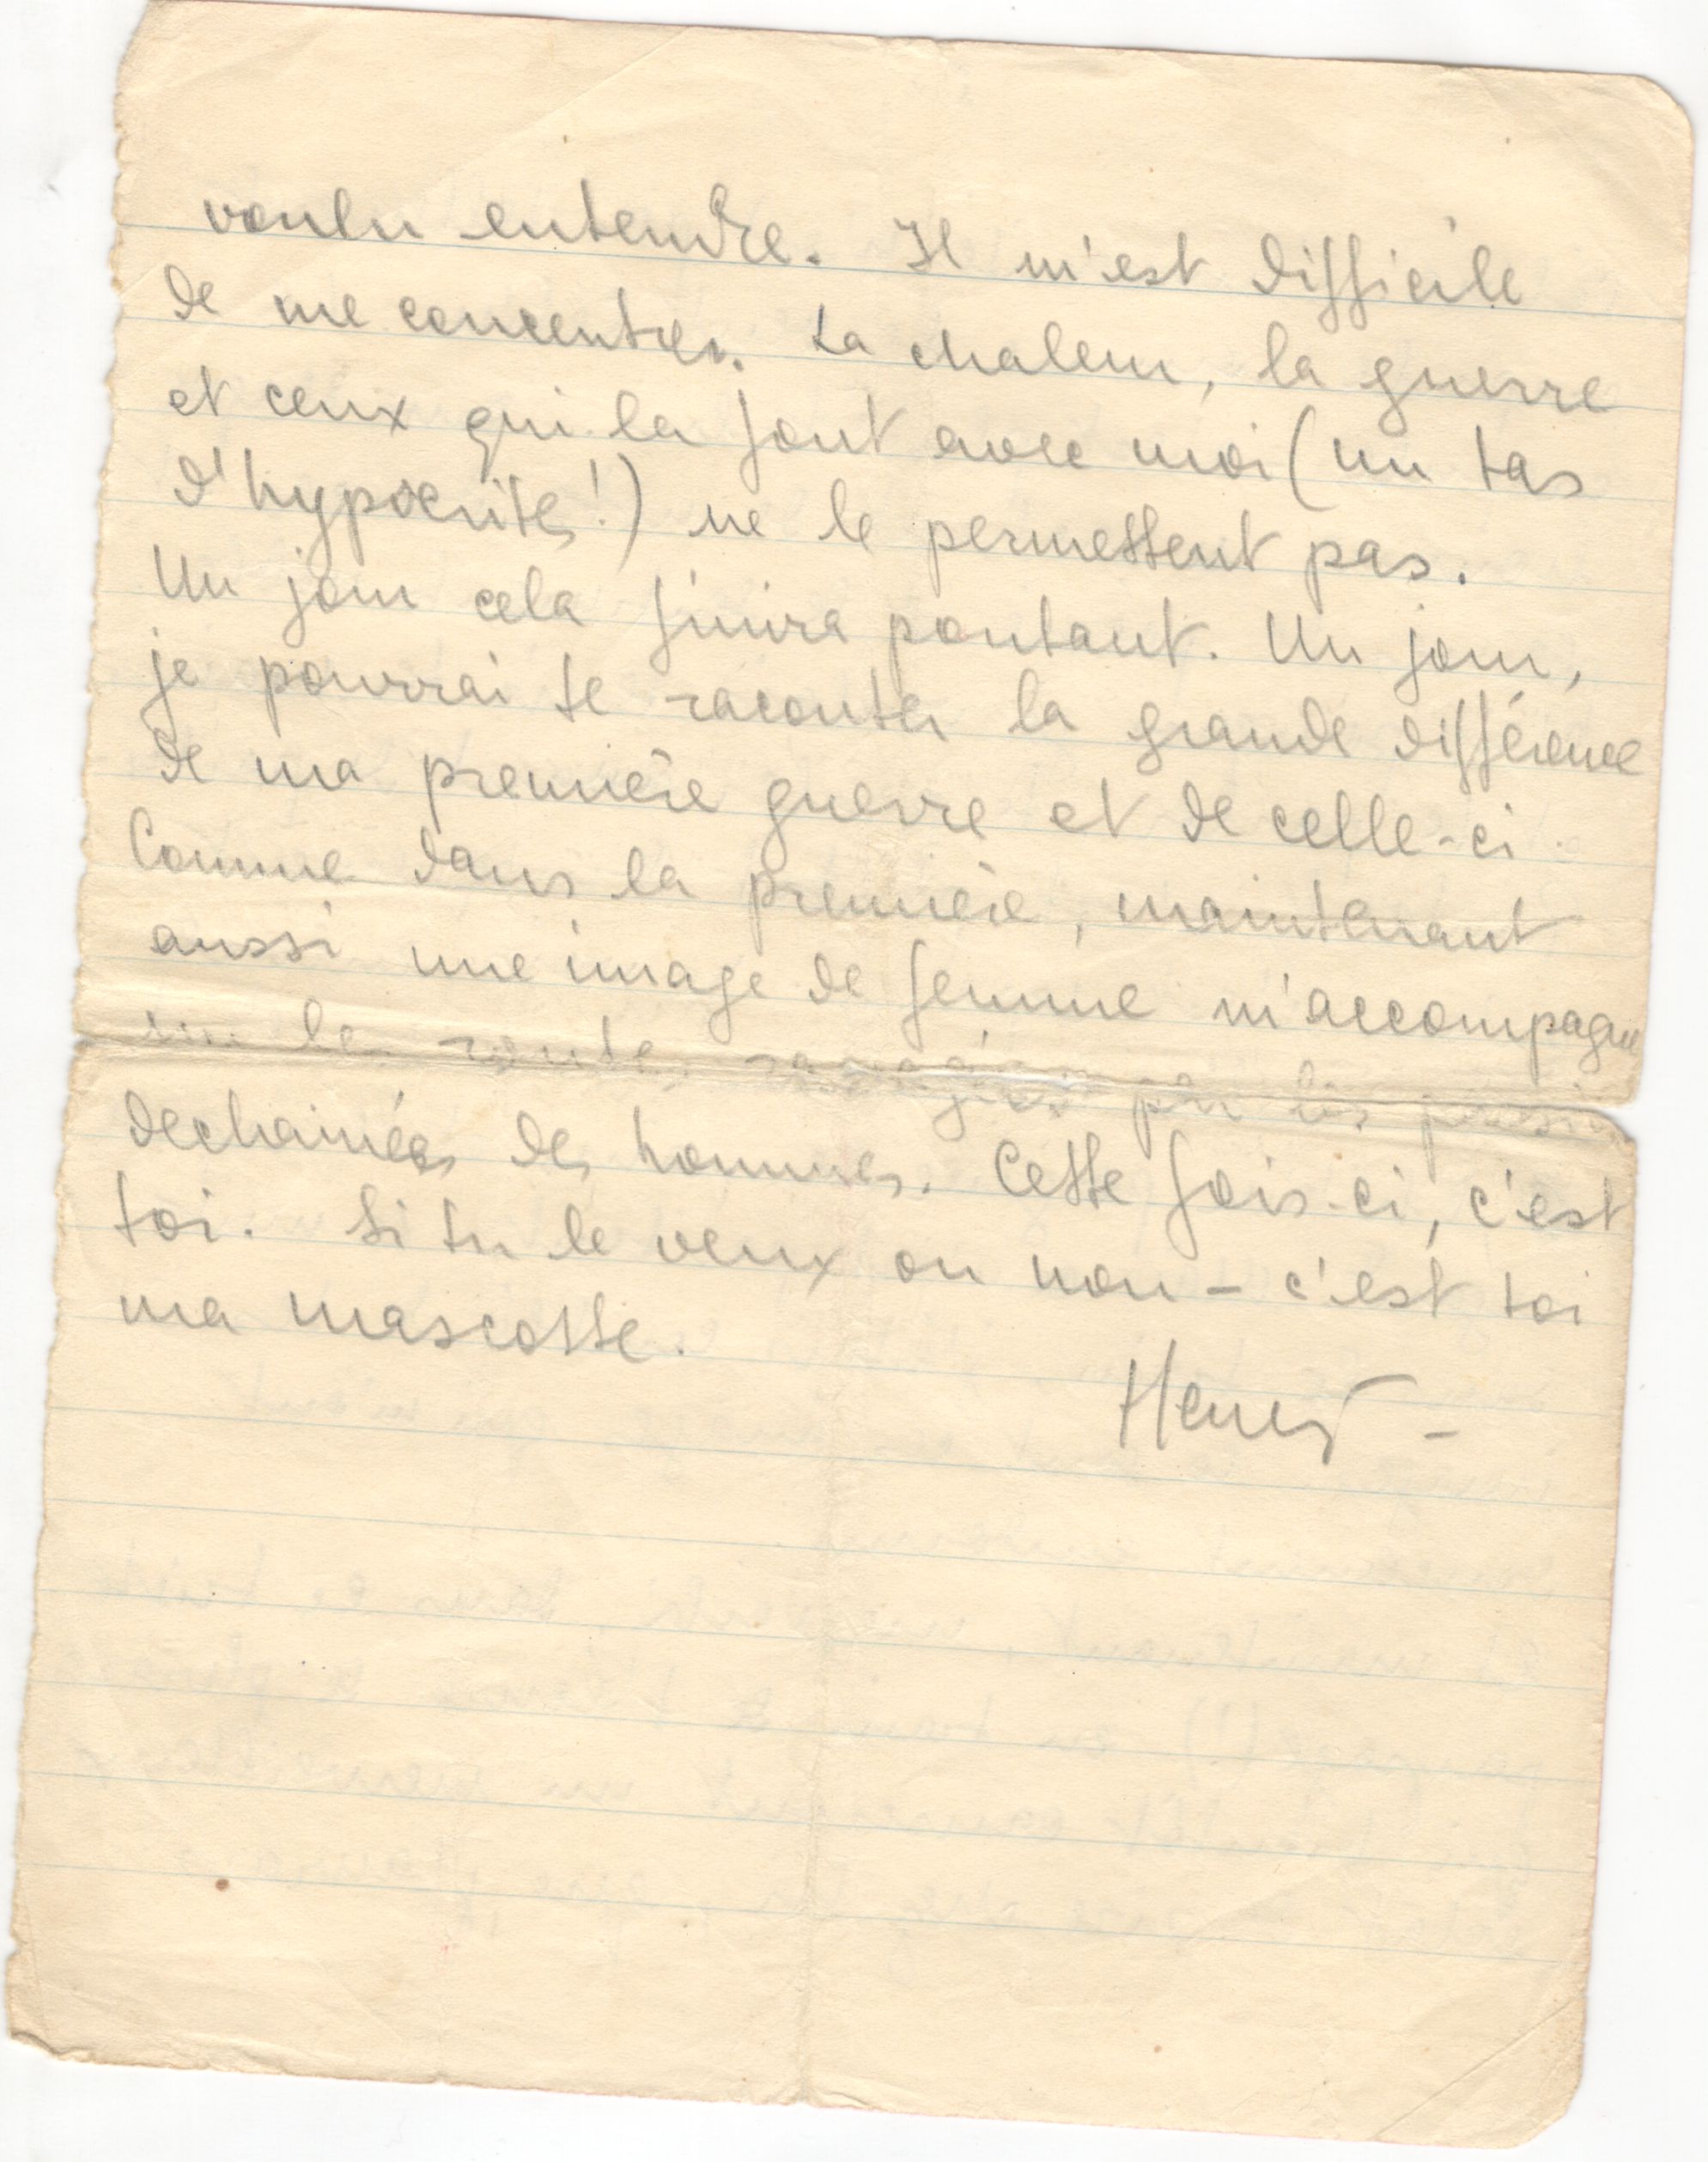 voulu entendre. Il m'est difficile
de me concentrer. La chaleur, la guerre
et ceux qui la font avec moi (un tas
d'hypocrites!) ne le permettent pas.
Un jour cela finira pourtant. Un jour,
je pourrai te raconter la grande différence
de ma première guerre et de celle-ci.
Comme dans la première, maintenant
aussi une image de femme m'accompagne
sur les routes ravagées par les passions
dechainées des hommes. Cette fois-ci, c'est
toi. Si tu le veux ou non – c'est toi
ma mascotte.